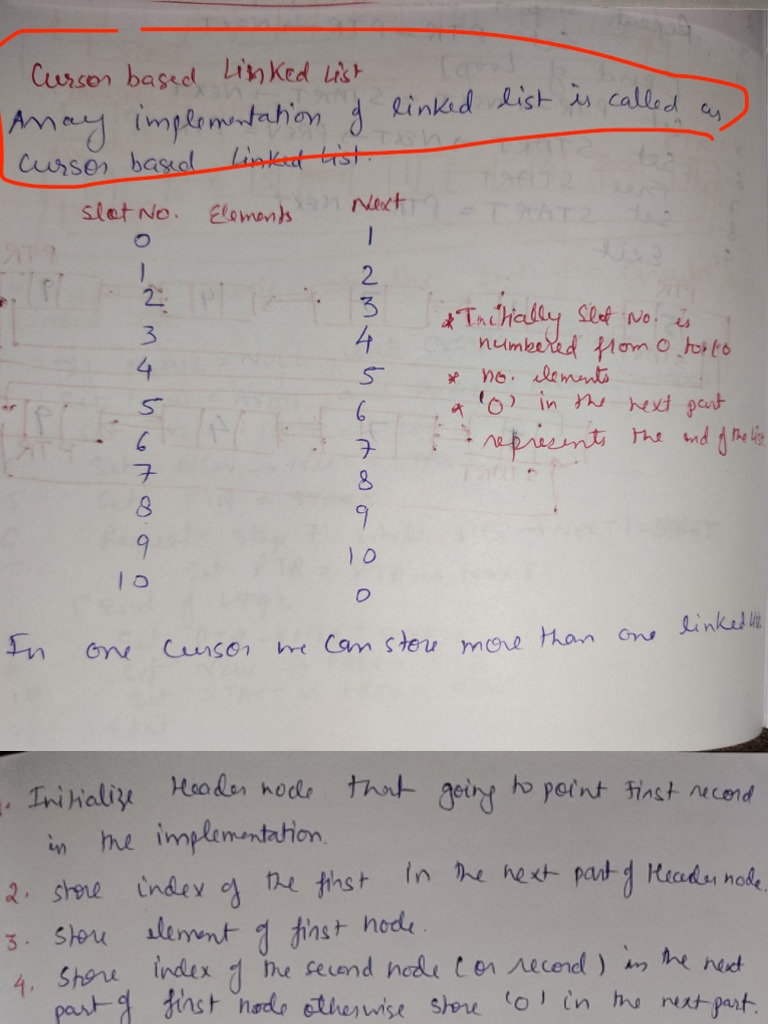 Cursor based Linked List
Array implementation of linked list is called as
cursor based linked list.
Slot No. Elements Next
0 1
1 2
2 3
3 4
4 5
5 6
6 7
7 8
8 9
9 10
10 0
* Initially Slot No. is
numbered from 0 to 10
* no. elements
* '0' in the next part
represents the end of the list
In one cursor we can store more than one linked list.
1. Initialize Header node that going to point First record
in the implementation.
2. store index of the first in the next part of Header node.
3. store element of first node.
4. store index of the second node (or record) in the next
part of first node otherwise store '0' in the next part.